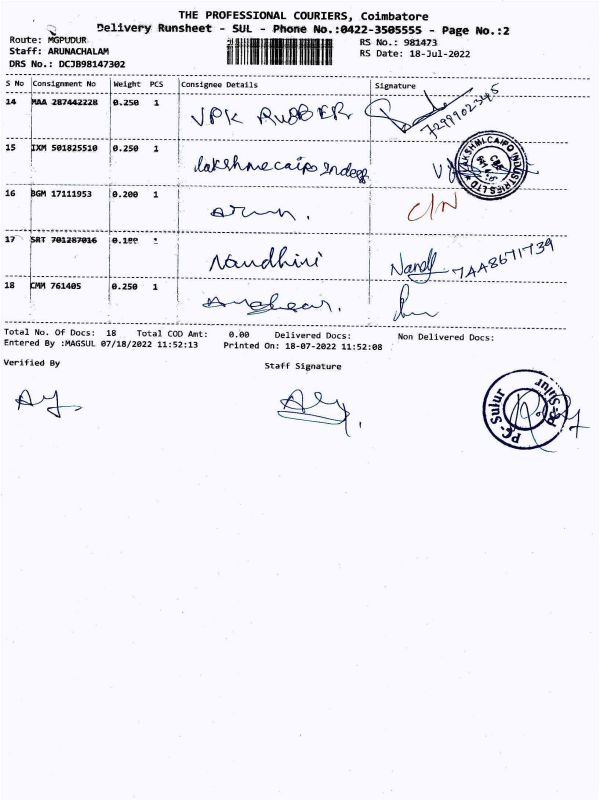 THE PROFESSIONAL COURIERS, Coimbatore
Delivery Runsheet - SUL - Phone No.:0422-3505555 - Page No.:2
Route: MGPUDUR
RS No.: 981473
Staff: ARUNACHALAM
RS Date: 18-Jul-2022
DRS No.: DCJB98147302
S No Consignment No Weight PCS Consignee Details Signature
14 MAA 287442228 0.250 1 VPK RUBBER
15 IXM 501825510 0.250 1
LAKSHMI CAIPO INDUSTRIES LTD
16 BGM 17111953 0.200 1 Arun. C/N
17 SRT 701287016 0.100 Nandhini Nandh
18 CMM 761405 0.250 1
Total No. Of Docs: 18 Total COD Amt: 0.00 Delivered Docs: Non Delivered Docs:
Entered By :MAGSUL 07/18/2022 11:52:13 Printed On: 18-07-2022 11:52:08
Verified By Staff Signature
PC-Sulur PC-Sulur